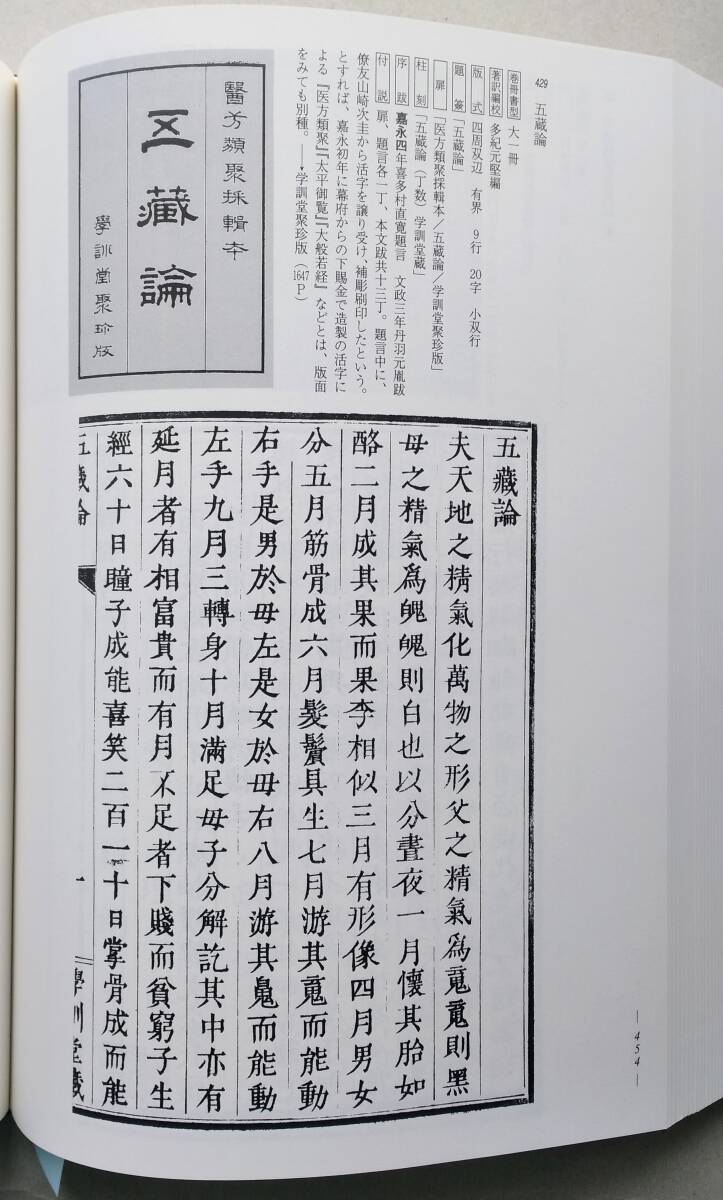 429　五蔵論
巻冊書型　大一冊
著訳編校　多紀元堅編
版式　四周双辺　有界　9行　20字　小双行
題簽　「五蔵論」
扉　「医方類聚採輯本／五蔵論／学訓堂聚珍版」
柱刻　「五蔵論　（丁数）　学訓堂蔵」
序跋　嘉永四年喜多村直寛題言　文政三年丹羽元胤跋
付説　扉、題言各一丁、本文跋共十三丁。題言中に、
僚友山崎次圭から活字を譲り受け、補彫刷印したという。
とすれば、嘉永初年に幕府からの下賜金で造製の活字に
よる『医方類聚』『太平御覧』『大般若経』などとは、版面
をみても別種。→学訓堂聚珍版（1647P）
醫方類聚採輯本
五藏論
學訓堂聚珍版
五藏論
夫天地之精氣化萬物之形父之精氣爲䰟䰟則黑
母之精氣爲魄魄則白也以分晝夜一月懷其胎如
酪二月成其果而果李相似三月有形像四月男女
分五月筋骨成六月髮鬢具生七月游其䰟而能動
右手是男於母左是女於母右八月游其魄而能動
左手九月三轉身十月滿足母子分解訖其中亦有
延月者有相富貴而有月不足者下賤而貧窮子生
經六十日瞳子成能喜笑二百一十日掌骨成而能
五藏論
一
學訓堂藏
— 454 —